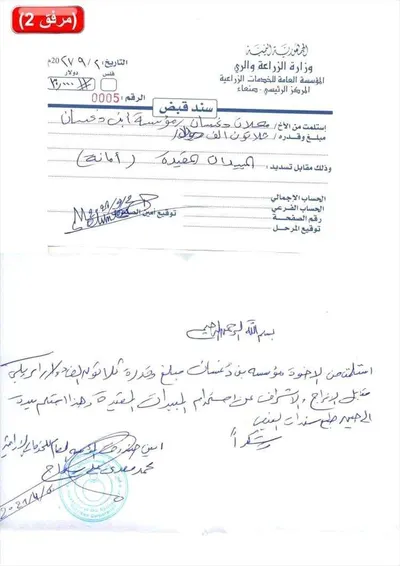 (مرفق 2)
الجمهورية اليمنية
وزارة الزراعة والري
المؤسسة العامة للخدمات الزراعية
المركز الرئيسي - صنعاء
التاريخ:
فلس دولار
الرقم: 0005
سند قبض
إستلمت من الأخ/ محلات دغسان / مؤسسة ابن دغسان
مبلغ وقدره/ ثلاثون الف دولار
وذلك مقابل تسديد: المبيدات المقيدة (أمانة)
الحساب الإجمالي
الحساب الفرعي
رقم الصفحة
توقيع المرحل
توقيع أمين الصندوق
بسم الله الرحمن الرحيم
استلمت من الاخوة مؤسسة بن دغسان مبلغ وقدره ثلاثون الف دولار امريكي
مقابل الافراج والاشراف عن استخدام المبيدات المقيدة وهذا استلام بيدنا
الى حين
وشكراً
امين صندوق
محمد